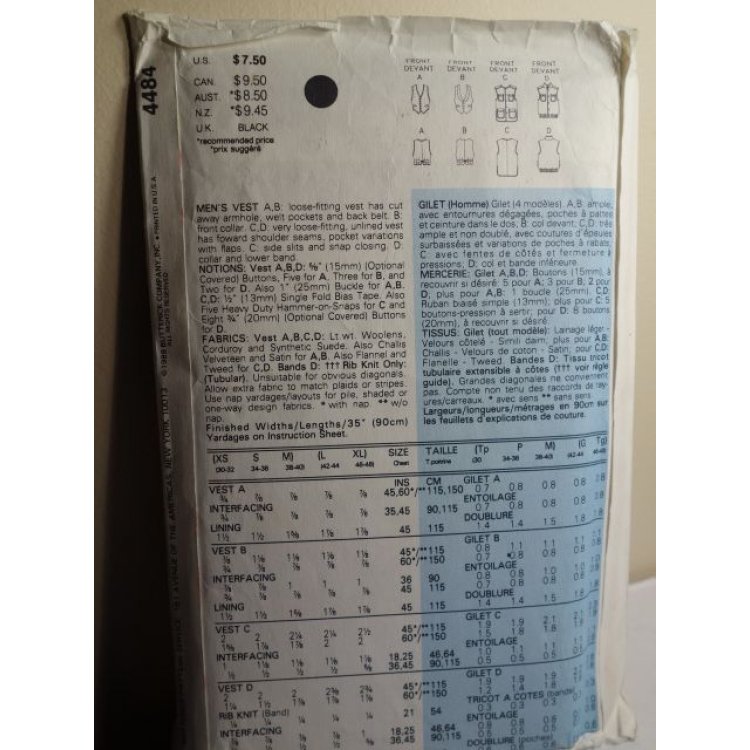 4484
U.S. $7.50
CAN. $9.50
AUST. *$8.50
N.Z. *$9.45
U.K. BLACK
*recommended price
*prix suggéré
FRONT FRONT FRONT FRONT
DEVANT DEVANT DEVANT DEVANT
A B C D
A B C D
MEN'S VEST A,B: loose-fitting vest has cut
away armhole, welt pockets and back belt. B:
front collar. C,D: very loose-fitting, unlined vest
has foward shoulder seams, pocket variations
with flaps. C: side slits and snap closing. D:
collar and lower band.
NOTIONS: Vest A,B,D: ⅝" (15mm) (Optional
Covered) Buttons, Five for A, Three for B, and
Two for D. Also 1" (25mm) Buckle for A,B.
C,D: ½" (13mm) Single Fold Bias Tape. Also
Five Heavy Duty Hammer-on-Snaps for C and
Eight ¾" (20mm) (Optional Covered) Buttons
for D.
FABRICS: Vest A,B,C,D: Lt wt. Woolens,
Corduroy and Synthetic Suede. Also Challis
Velveteen and Satin for A,B. Also Flannel and
Tweed for C,D. Bands D: ††† Rib Knit Only:
(Tubular). Unsuitable for obvious diagonals.
Allow extra fabric to match plaids or stripes.
Use nap yardages/layouts for pile, shaded or
one-way design fabrics. * with nap ** w/o
nap.
Finished Widths/Lengths/35" (90cm)
Yardages on Instruction Sheet.
GILET (Homme) Gilet (4 modèles). A,B: ample,
avec entournures dégagées, poches à pattes
et ceinture dans le dos, B: col devant. C,D: très
ample et non doublé, avec coutures d'épaules
surbaissées et variations de poches à rabats,
C: avec fentes de côtés et fermeture à
pressions, D: col et bande inférieure.
MERCERIE: Gilet A,B,D: Boutons (15mm), à
recouvrir si désiré: 5 pour A; 3 pour B; 2 pour
D; plus pour A,B: 1 boucle (25mm). C,D:
Ruban biaisé simple (13mm); plus pour C: 5
boutons-pression à sertir; pour D: 8 boutons
(20mm), à recouvrir si désiré.
TISSUS: Gilet (tout modèle): Lainage léger -
Velours côtelé - Simili daim, plus pour A,B:
Challis - Velours de coton - Satin; pour C,D:
Flanelle - Tweed. Bandes D: Tissu tricot
tubulaire extensible à côtes (††† voir règle
guide). Grandes diagonales ne conviennent
pas. Compte non tenu des raccords de ray-
ures/carreaux. * avec sens ** sans sens.
Largeurs/longueurs/métrages en 90cm sur
les feuillets d'explications de couture.
(XS S M) (L XL) SIZE TAILLE (Tp P M) (G Tg)
(30-32 34-36 38-40) (42-44 46-48) Chest T poitrine (30 34-36 38-40) (42-44 46-48)
INS CM GILET A
VEST A
¾ ⅞ ⅞ ⅞ ⅞ 45,60*/** 115,150 0.7 0.8 0.8 0.8 0.8
INTERFACING ENTOILAGE
¾ ⅞ ⅞ ⅞ ⅞ 35,45 90,115 0.7 0.8 0.8 0.8 0.8
LINING DOUBLURE
1½ 1½ 1⅝ 1⅞ 45 115 1.4 1.4 1.5 1.8
VEST B GILET B
45*/** 115 0.8 1.1 1.1 1.1
60*/** 150 0.7 0.8
INTERFACING ENTOILAGE
36 90 0.8 0.8 1.0 1.0
45 115 0.7 0.8
LINING DOUBLURE
1½ 1½ 1⅝ 1⅞ 45 115 1.4 1.4 1.5 1.8
VEST C GILET C
2 2 2¼ 2¼ 2½ 45*/** 115 1.9 1.9 2.1 2.1
1⅝ 1⅞ 1⅞ 2 2 60*/** 150 1.5 1.8 1.8
INTERFACING ENTOILAGE
1 1⅛ 1⅛ 1⅛ 1⅛ 18,25 46,64 1.0 1.1 1.1
½ ½ ½ ⅝ ⅝ 36,45 90,115 0.5 0.5 0.5
VEST D GILET D
2 2 2 2⅜ 2¾ 45*/** 115 1.9 1.9 1.9
60*/** 150 1.2 1.4 1.8
RIB KNIT (Band) TRICOT A COTES (bande)
¼ ¼ ¼ ¼ 21 54 0.3 0.3 0.3
INTERFACING ENTOILAGE
18,25 46,64 0.8 0.8 0.8
36,45 90,115 0.5 0.5
DOUBLURE (poches)
©1989 BUTTERICK COMPANY, INC. • PRINTED IN U.S.A.
ALL RIGHTS RESERVED
161 AVENUE OF THE AMERICAS, NEW YORK 10013